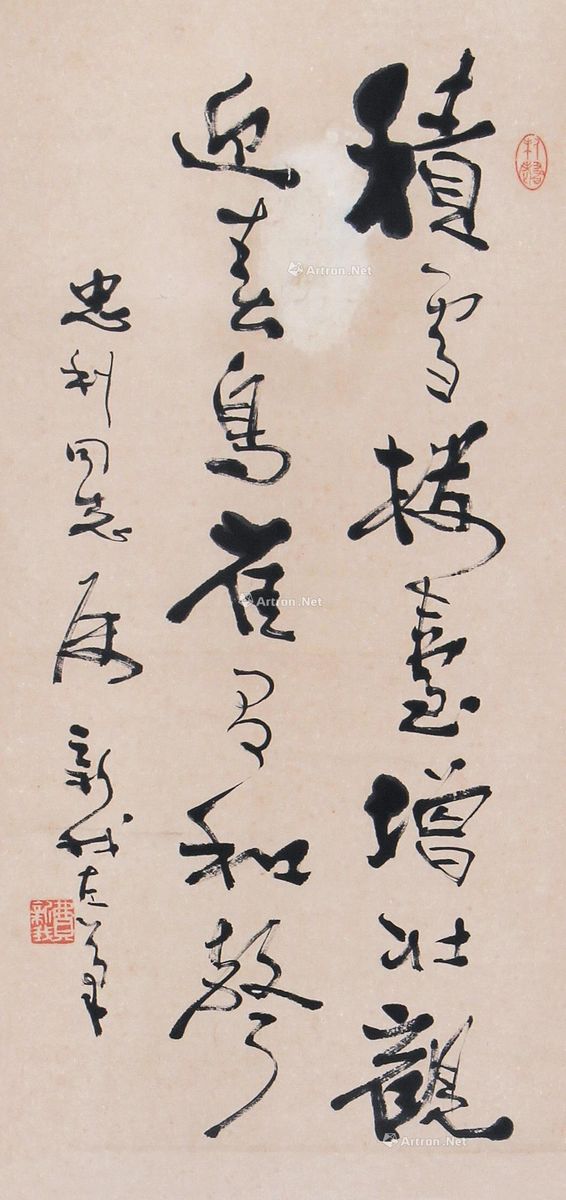 積雪樓臺增壯觀
迎春鳥雀有和聲
忠利同志屬
新我左筆
費新我
Artron.Net
Artron.Net
Artron.Net